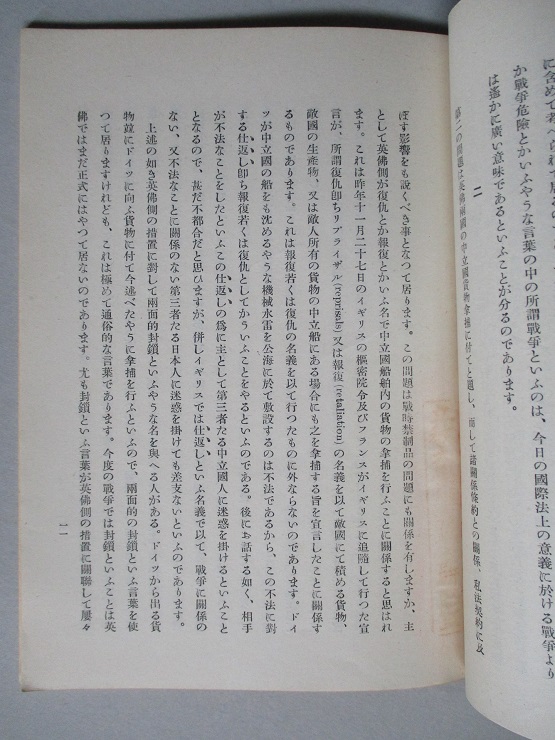 に含めて考へられて居る
か戰爭危險とかいふやうな言葉の中の所謂戰爭といふのは、今日の國際法上の意義に於ける戰爭より
は遙かに廣い意味であるといふことが分るのであります。
二
第二の問題は英佛兩國の中立國貨物拿捕に付てと題し、而して諸關係條約との關係、私法契約に及
ぼす影響をも說くべき事となつて居ります。この問題は戰時禁制品の問題にも關係を有しますが、主
として英佛が復仇とか報復とかいふ名で中立國船舶內の貨物の拿捕を行ふことに關係すると思はれ
ます。これは昨年十一月二十七日のイギリスの樞密院令及びフランスがイギリスに追隨して行つた宣
言が、所謂復仇卽ちリプライザル(reprisals)又は報復(retaliation)の名義を以て敵國にて積める貨物、
敵國の生產物、又は敵人所有の貨物の中立船にある場合にも之を拿捕する旨を宣言したことに關係す
るものであります。これは報復若くは復仇の名義を以て行つたものに外ならないのであります。ドイ
ツが中立國の船をも沈めるやうな機械水雷を公海に於て敷設するのは不法であるから、この不法に對
する仕返し卽ち報復若くは復仇としてかういふことをやるといふのである。後にお話する如く、相手
が不法なことをしたといふこの仕返しの爲に主として第三者たる中立國人に迷惑を掛けるといふこと
となるので、甚だ不都合だと思ひますが、併しイギリスでは仕返しといふ名義で以て、戰爭に關係の
ない、又不法なことに關係のない第三者たる日本人に迷惑を掛けても差支ないといふのであります。
上述の如き英佛側の措置に對して兩面的封鎖といふやうな名を與へる人がある。ドイツから出る貨
物竝にドイツに向ふ貨物に付て今述べたやうに拿捕を行ふといふので、兩面的の封鎖といふ言葉を使
つて居りますけれども、これは極めて通俗的な言葉であります。今度の戰爭では封鎖といふことは英
佛ではまだ正式にはやつて居ないのであります。尤も封鎖といふ言葉が英佛側の措置に關聯して屢々
一一